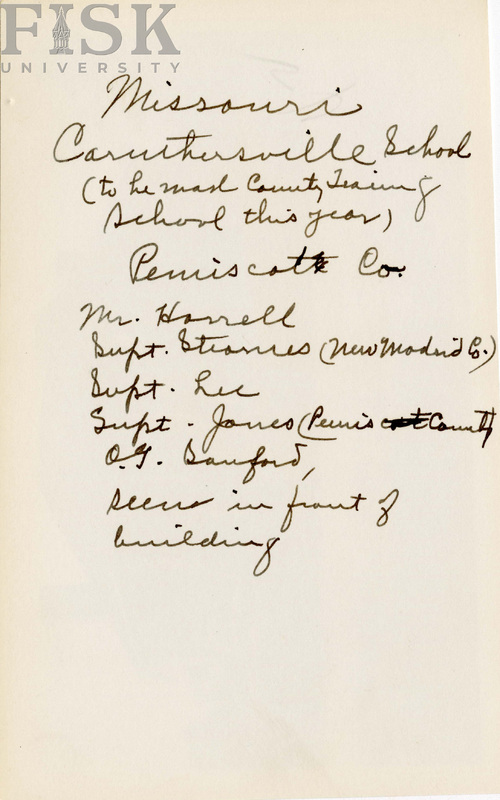 FISK
UNIVERSITY
Missouri
Caruthersville School
(to be made County Training
School this year)
Pemiscott Co.
Mr. Harrell
Supt. Stearnes (New Madrid Co.)
Supt. Lee
Supt. Jones (Pemiscott County)
O.G. Sanford,
seen in front of
building